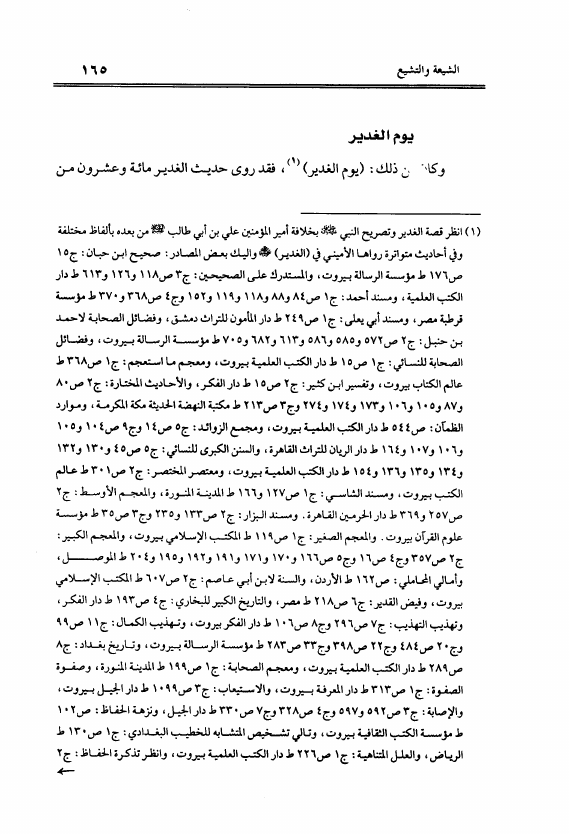 الشيعة والتشيع ١٦٥
يوم الغدير
وكان من ذلك: (يوم الغدير)(١)، فقد روى حديث الغدير مائة وعشرون من
(١) انظر قصة الغدير وتصريح النبي ﷺ بخلافة أمير المؤمنين علي بن أبي طالب من بعده بألفاظ مختلفة
وفي أحاديث متواترة رواها الأميني في (الغدير) واليك بعض المصادر: صحيح ابن حبان: ج١٥
ص١٧٦ ط مؤسسة الرسالة بيروت، والمستدرك على الصحيحين: ج٣ ص١١٨ و١٢٦ و٦١٣ ط دار
الكتب العلمية، ومسند أحمد: ج١ ص٨٤ و٨٨ و١١٨ و١١٩ و١٥٢ وج٤ ص٣٦٨ و٣٧٠ ط مؤسسة
قرطبة مصر، ومسند أبي يعلى: ج١ ص٢٤٩ ط دار المأمون للتراث دمشق، وفضائل الصحابة لاحمد
بن حنبل: ج٢ ص٥٧٢ و٥٨٥ و٥٨٦ و٦١٣ و٦٨٢ و٧٠٥ ط مؤسسة الرسالة بيروت، وفضائل
الصحابة للنسائي: ج١ ص١٥ ط دار الكتب العلمية بيروت، ومعجم ما استعجم: ج١ ص٣٦٨ ط
عالم الكتاب بيروت، وتفسير ابن كثير: ج٢ ص١٥ ط دار الفكر، والأحاديث المختارة: ج٢ ص٨٠
و٨٧ و١٠٥ و١٠٦ و١٧٣ و١٧٤ و٢٧٤ وج٣ ص٢١٣ ط مكتبة النهضة الحديثة مكة المكرمة، وموارد
الظمآن: ص٥٤٤ ط دار الكتب العلمية بيروت، ومجمع الزوائد: ج٥ ص١٤ وج٩ ص١٠٤ و١٠٥
و١٠٦ و١٠٧ و١٦٤ ط دار الريان للتراث القاهرة، والسنن الكبرى للنسائي: ج٥ ص٤٥ و١٣٠ و١٣٢
و١٣٤ و١٣٥ و١٣٦ و١٥٤ ط دار الكتب العلمية بيروت، ومعتصر المختصر: ج٢ ص٣٠١ ط عالم
الكتب بيروت، ومسند الشاسي: ج١ ص١٢٧ و١٦٦ ط المدينة المنورة، والمعجم الأوسط: ج٢
ص٢٥٧ و٣٦٩ ط دار الحرمين القاهرة. ومسند البزار: ج٢ ص١٣٣ و٢٣٥ وج٣ ص٣٥ ط مؤسسة
علوم القرآن بيروت. والمعجم الصغير: ج١ ص١١٩ ط المكتب الإسلامي بيروت، والمعجم الكبير:
ج٢ ص٣٥٧ وج٤ ص١٦ وج٥ ص١٦٦ و١٧٠ و١٧١ و١٩١ و١٩٢ و١٩٥ و٢٠٤ ط الموصل،
وأمالي المحاملي: ص١٦٢ ط الأردن، والسنة لابن أبي عاصم: ج٢ ص٦٠٧ ط المكتب الإسلامي
بيروت، وفيض القدير: ج٦ ص٢١٨ ط مصر، والتاريخ الكبير للبخاري: ج٤ ص١٩٣ ط دار الفكر،
وتهذيب التهذيب: ج٧ ص٢٩٦ وج٨ ص١٠٦ ط دار الفكر بيروت، وتهذيب الكمال: ج١١ ص٩٩
وج٢٠ ص٤٨٤ وج٢٢ ص٣٩٨ وج٣٣ ص٢٨٣ ط مؤسسة الرسالة بيروت، وتاريخ بغداد: ج٨
ص٢٨٩ ط دار الكتب العلمية بيروت، ومعجم الصحابة: ج١ ص١٩٩ ط المدينة المنورة، وصفوة
الصفوة: ج١ ص٣١٣ ط دار المعرفة بيروت، والاستيعاب: ج٣ ص١٠٩٩ ط دار الجيل بيروت،
والإصابة: ج٣ ص٥٩٢ و٥٩٧ وج٤ ص٣٢٨ وج٧ ص٣٣٠ ط دار الجيل، ونزهة الحفاظ: ص١٠٢
ط مؤسسة الكتب الثقافية بيروت، وتالي تشخيص المتشابه للخطيب البغدادي: ج١ ص١٣٠ ط
الرياض، والعلل المتناهية: ج١ ص٢٢٦ ط دار الكتب العلمية بيروت، وانظر تذكرة الحفاظ: ج٢